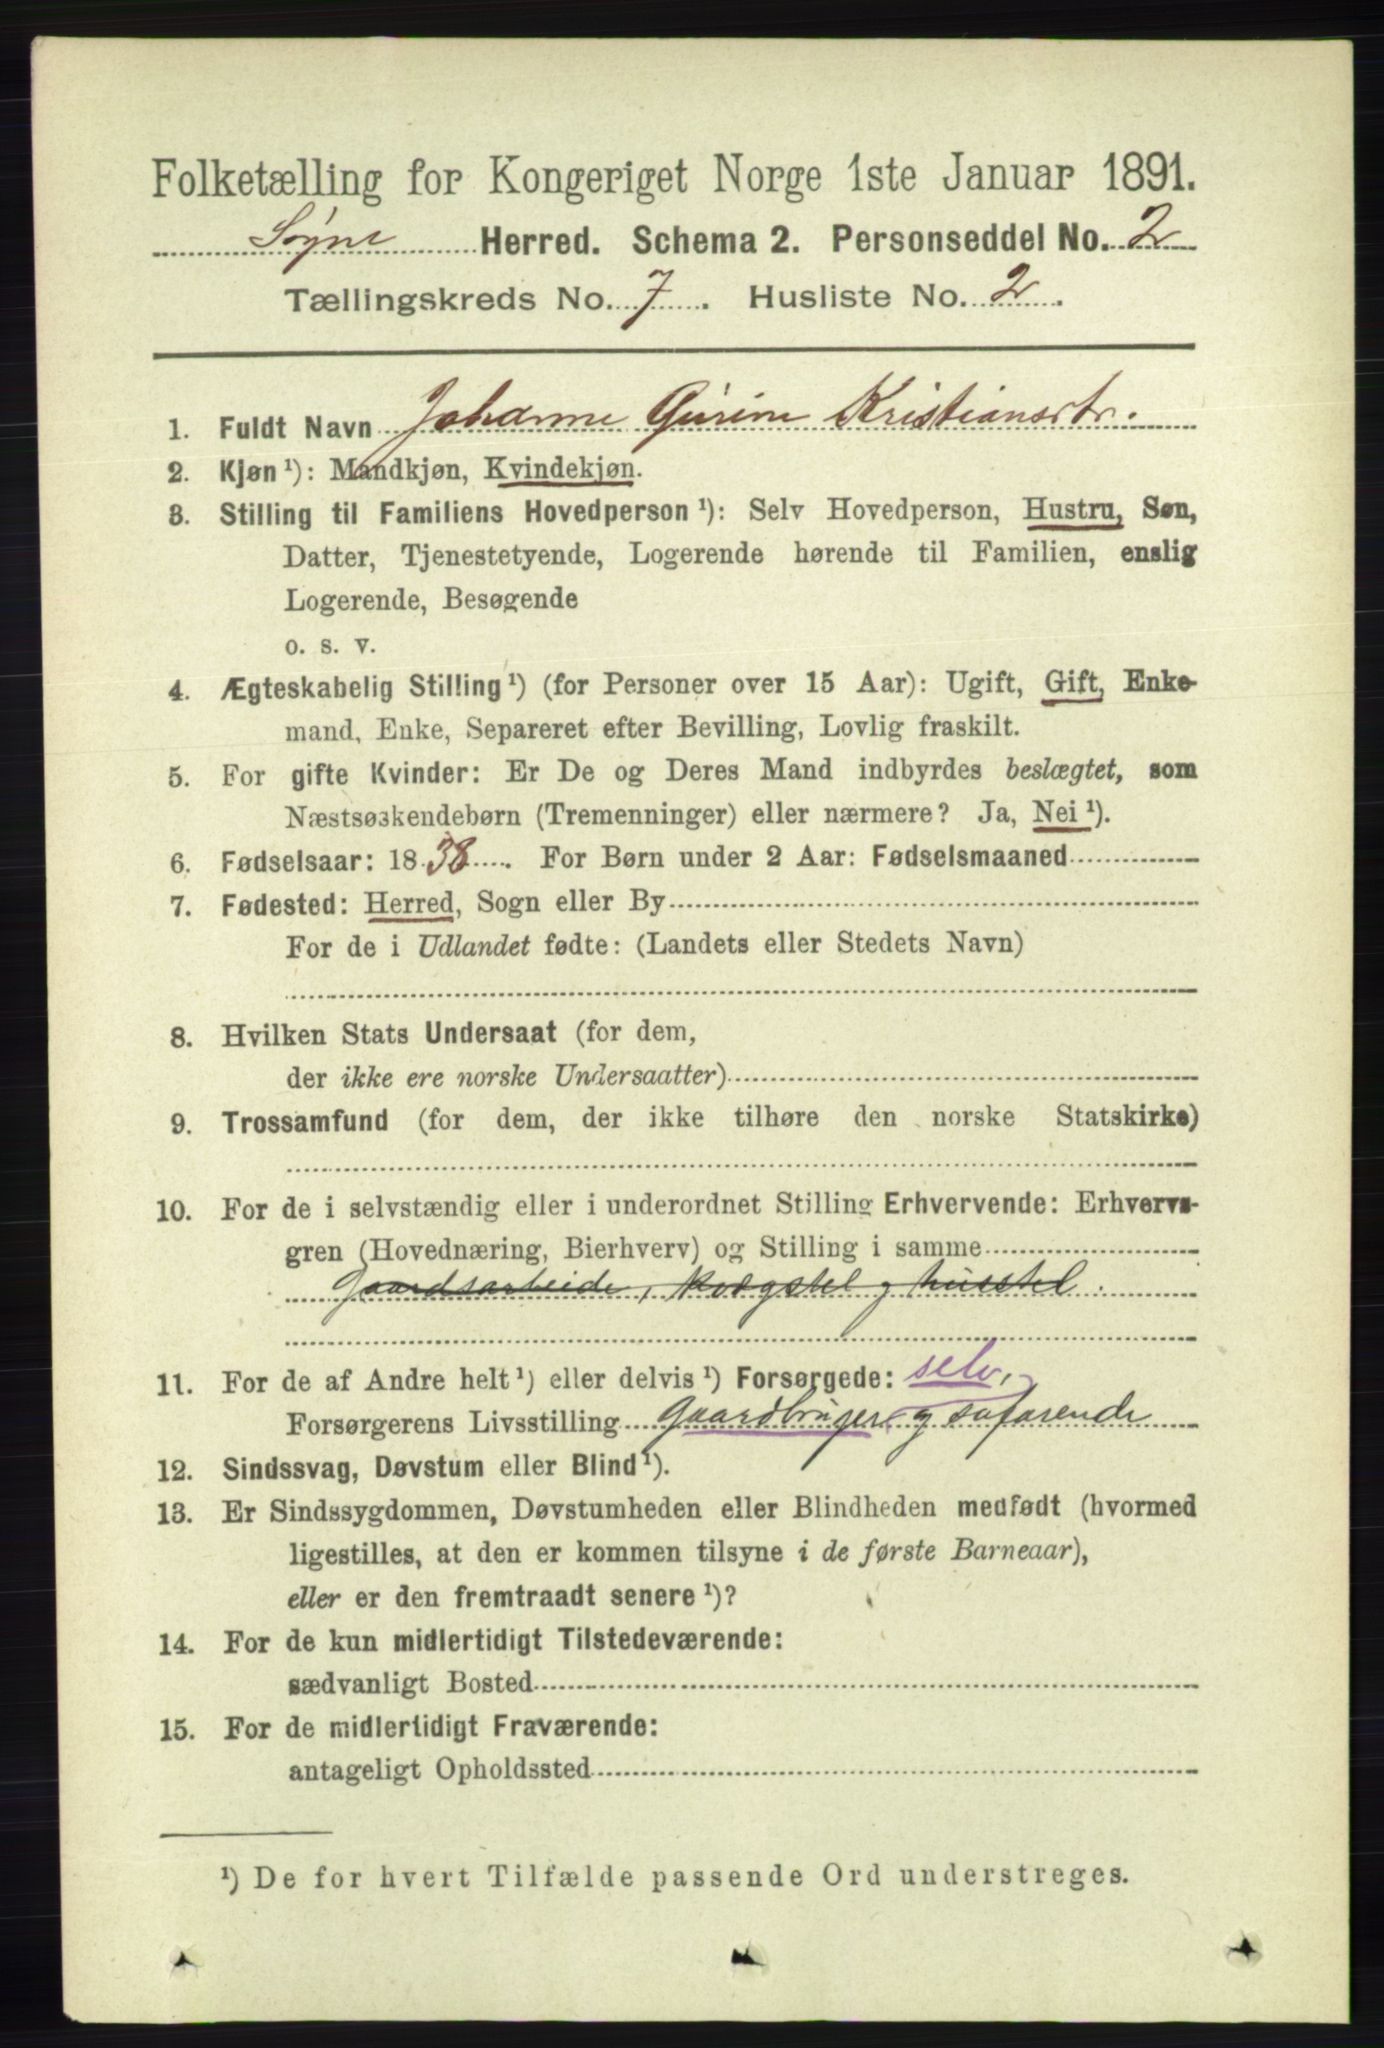 Folketælling for Kongeriget Norge 1ste Januar 1891.
Søgne Herred. Schema 2. Personseddel No. 2
Tællingskreds No. 7. Husliste No. 2.
1. Fuldt Navn Johanne Gurine Kristiansdtr.
2. Kjøn ¹): Mandkjøn, Kvindekjøn.
3. Stilling til Familiens Hovedperson ¹): Selv Hovedperson, Hustru, Søn,
Datter, Tjenestetyende, Logerende hørende til Familien, enslig
Logerende, Besøgende
o. s. v.
4. Ægteskabelig Stilling ¹) (for Personer over 15 Aar): Ugift, Gift, Enke-
mand, Enke, Separeret efter Bevilling, Lovlig fraskilt.
5. For gifte Kvinder: Er De og Deres Mand indbyrdes beslægtet, som
Næstsøskendebørn (Tremenninger) eller nærmere? Ja, Nei ¹).
6. Fødselsaar: 1838. For Børn under 2 Aar: Fødselsmaaned
7. Fødested: Herred, Sogn eller By
For de i Udlandet fødte: (Landets eller Stedets Navn)
8. Hvilken Stats Undersaat (for dem,
der ikke ere norske Undersaatter)
9. Trossamfund (for dem, der ikke tilhøre den norske Statskirke)
10. For de i selvstændig eller i underordnet Stilling Erhvervende: Erhvervs-
gren (Hovednæring, Bierhverv) og Stilling i samme
Gaardsarbeide, Kvægstel og husstel.
11. For de af Andre helt ¹) eller delvis ¹) Forsørgede: selv,
Forsørgerens Livsstilling Gaardbruger og søfarende
12. Sindssvag, Døvstum eller Blind ¹).
13. Er Sindssygdommen, Døvstumheden eller Blindheden medfødt (hvormed
ligestilles, at den er kommen tilsyne i de første Barneaar),
eller er den fremtraadt senere ¹)?
14. For de kun midlertidigt Tilstedeværende:
sædvanligt Bosted
15. For de midlertidigt Fraværende:
antageligt Opholdssted
¹) De for hvert Tilfælde passende Ord understreges.